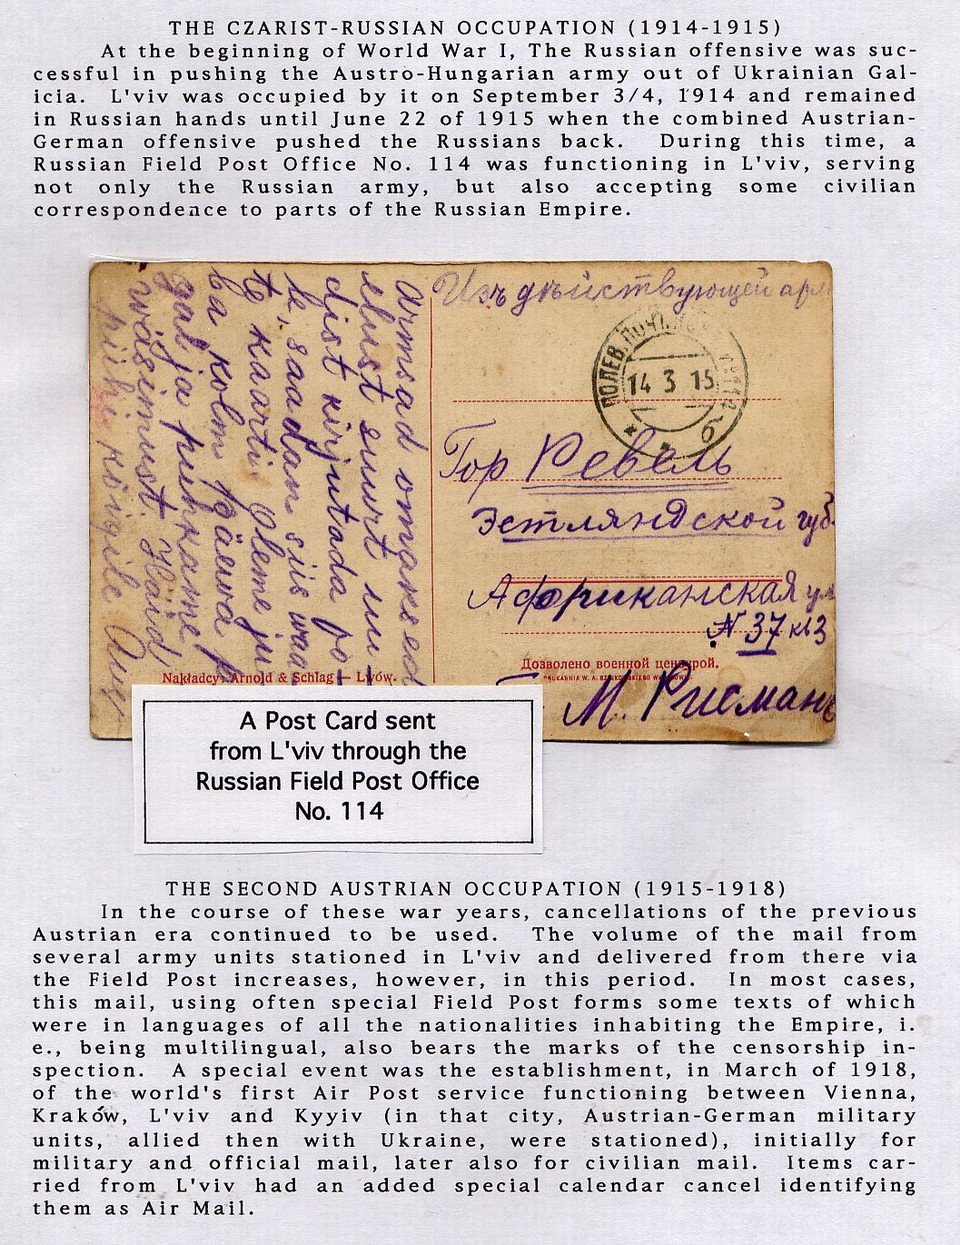 THE CZARIST-RUSSIAN OCCUPATION (1914-1915)
At the beginning of World War I, The Russian offensive was suc-
cessful in pushing the Austro-Hungarian army out of Ukrainian Gal-
icia. L'viv was occupied by it on September 3/4, 1914 and remained
in Russian hands until June 22 of 1915 when the combined Austrian-
German offensive pushed the Russians back. During this time, a
Russian Field Post Office No. 114 was functioning in L'viv, serving
not only the Russian army, but also accepting some civilian
correspondence to parts of the Russian Empire.
Armsad omaksed
elust suurt uu
dist kirjutada
le, saadan siis
te kaarti. Oleme
ba kolm päewa
gal ja puhkame
wäsimust. Häid
pühi kõigile
Изъ дѣйствующей
ПОЛЕВ. ПОЧТ.
14 3 15
б
Гор Ревель
Эстляндской губ.
Африканская ул
№ 37 кв 3
Дозволено военной цензурой.
М. Рисманъ
Nakładcy: Arnold & Schlag — Lwów.
A Post Card sent
from L'viv through the
Russian Field Post Office
No. 114
THE SECOND AUSTRIAN OCCUPATION (1915-1918)
In the course of these war years, cancellations of the previous
Austrian era continued to be used. The volume of the mail from
several army units stationed in L'viv and delivered from there via
the Field Post increases, however, in this period. In most cases,
this mail, using often special Field Post forms some texts of which
were in languages of all the nationalities inhabiting the Empire, i.
e., being multilingual, also bears the marks of the censorship in-
spection. A special event was the establishment, in March of 1918,
of the world's first Air Post service functioning between Vienna,
Kraków, L'viv and Kyyiv (in that city, Austrian-German military
units, allied then with Ukraine, were stationed), initially for
military and official mail, later also for civilian mail. Items car-
ried from L'viv had an added special calendar cancel identifying
them as Air Mail.